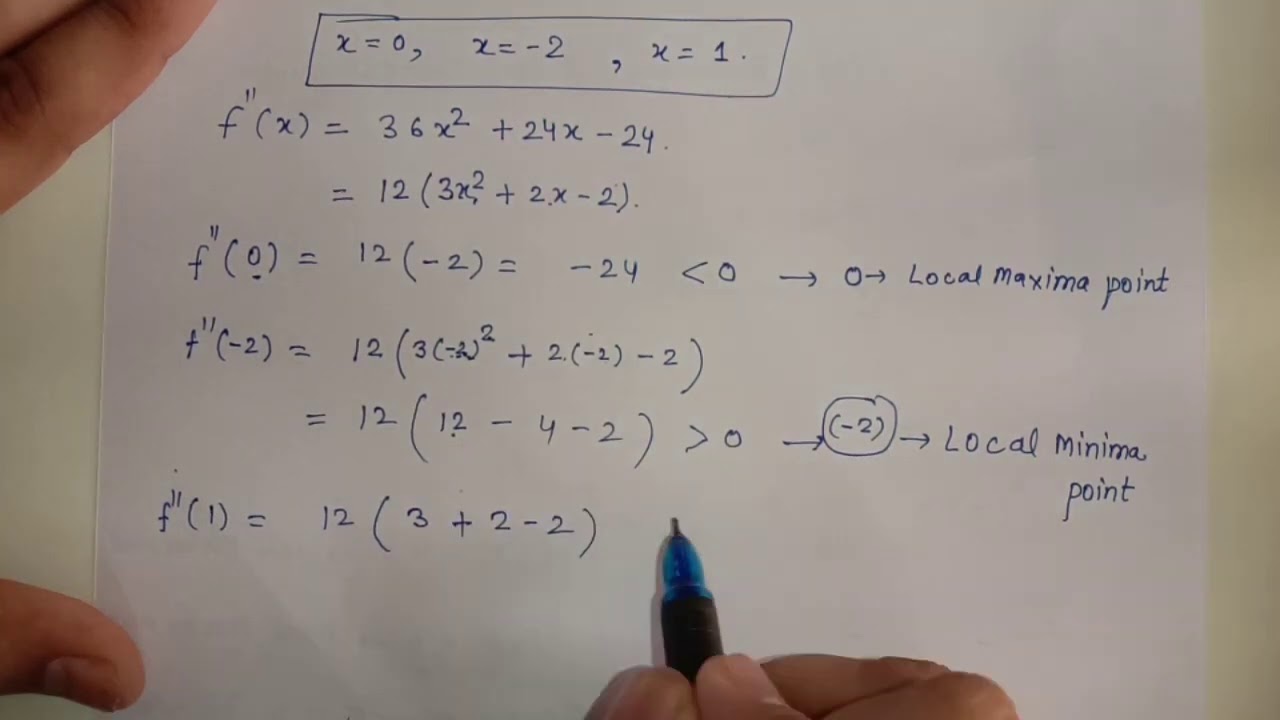 x = 0, x = -2 , x = 1.
f''(x) = 36x² + 24x - 24.
= 12(3x² + 2.x - 2).
f''(0) = 12(-2) = -24 < 0 → 0→ Local Maxima point
f''(-2) = 12(3(-2)² + 2.(-2) - 2)
= 12(12 - 4 - 2) > 0 → (-2) → Local Minima
point
f''(1) = 12(3 + 2 - 2)